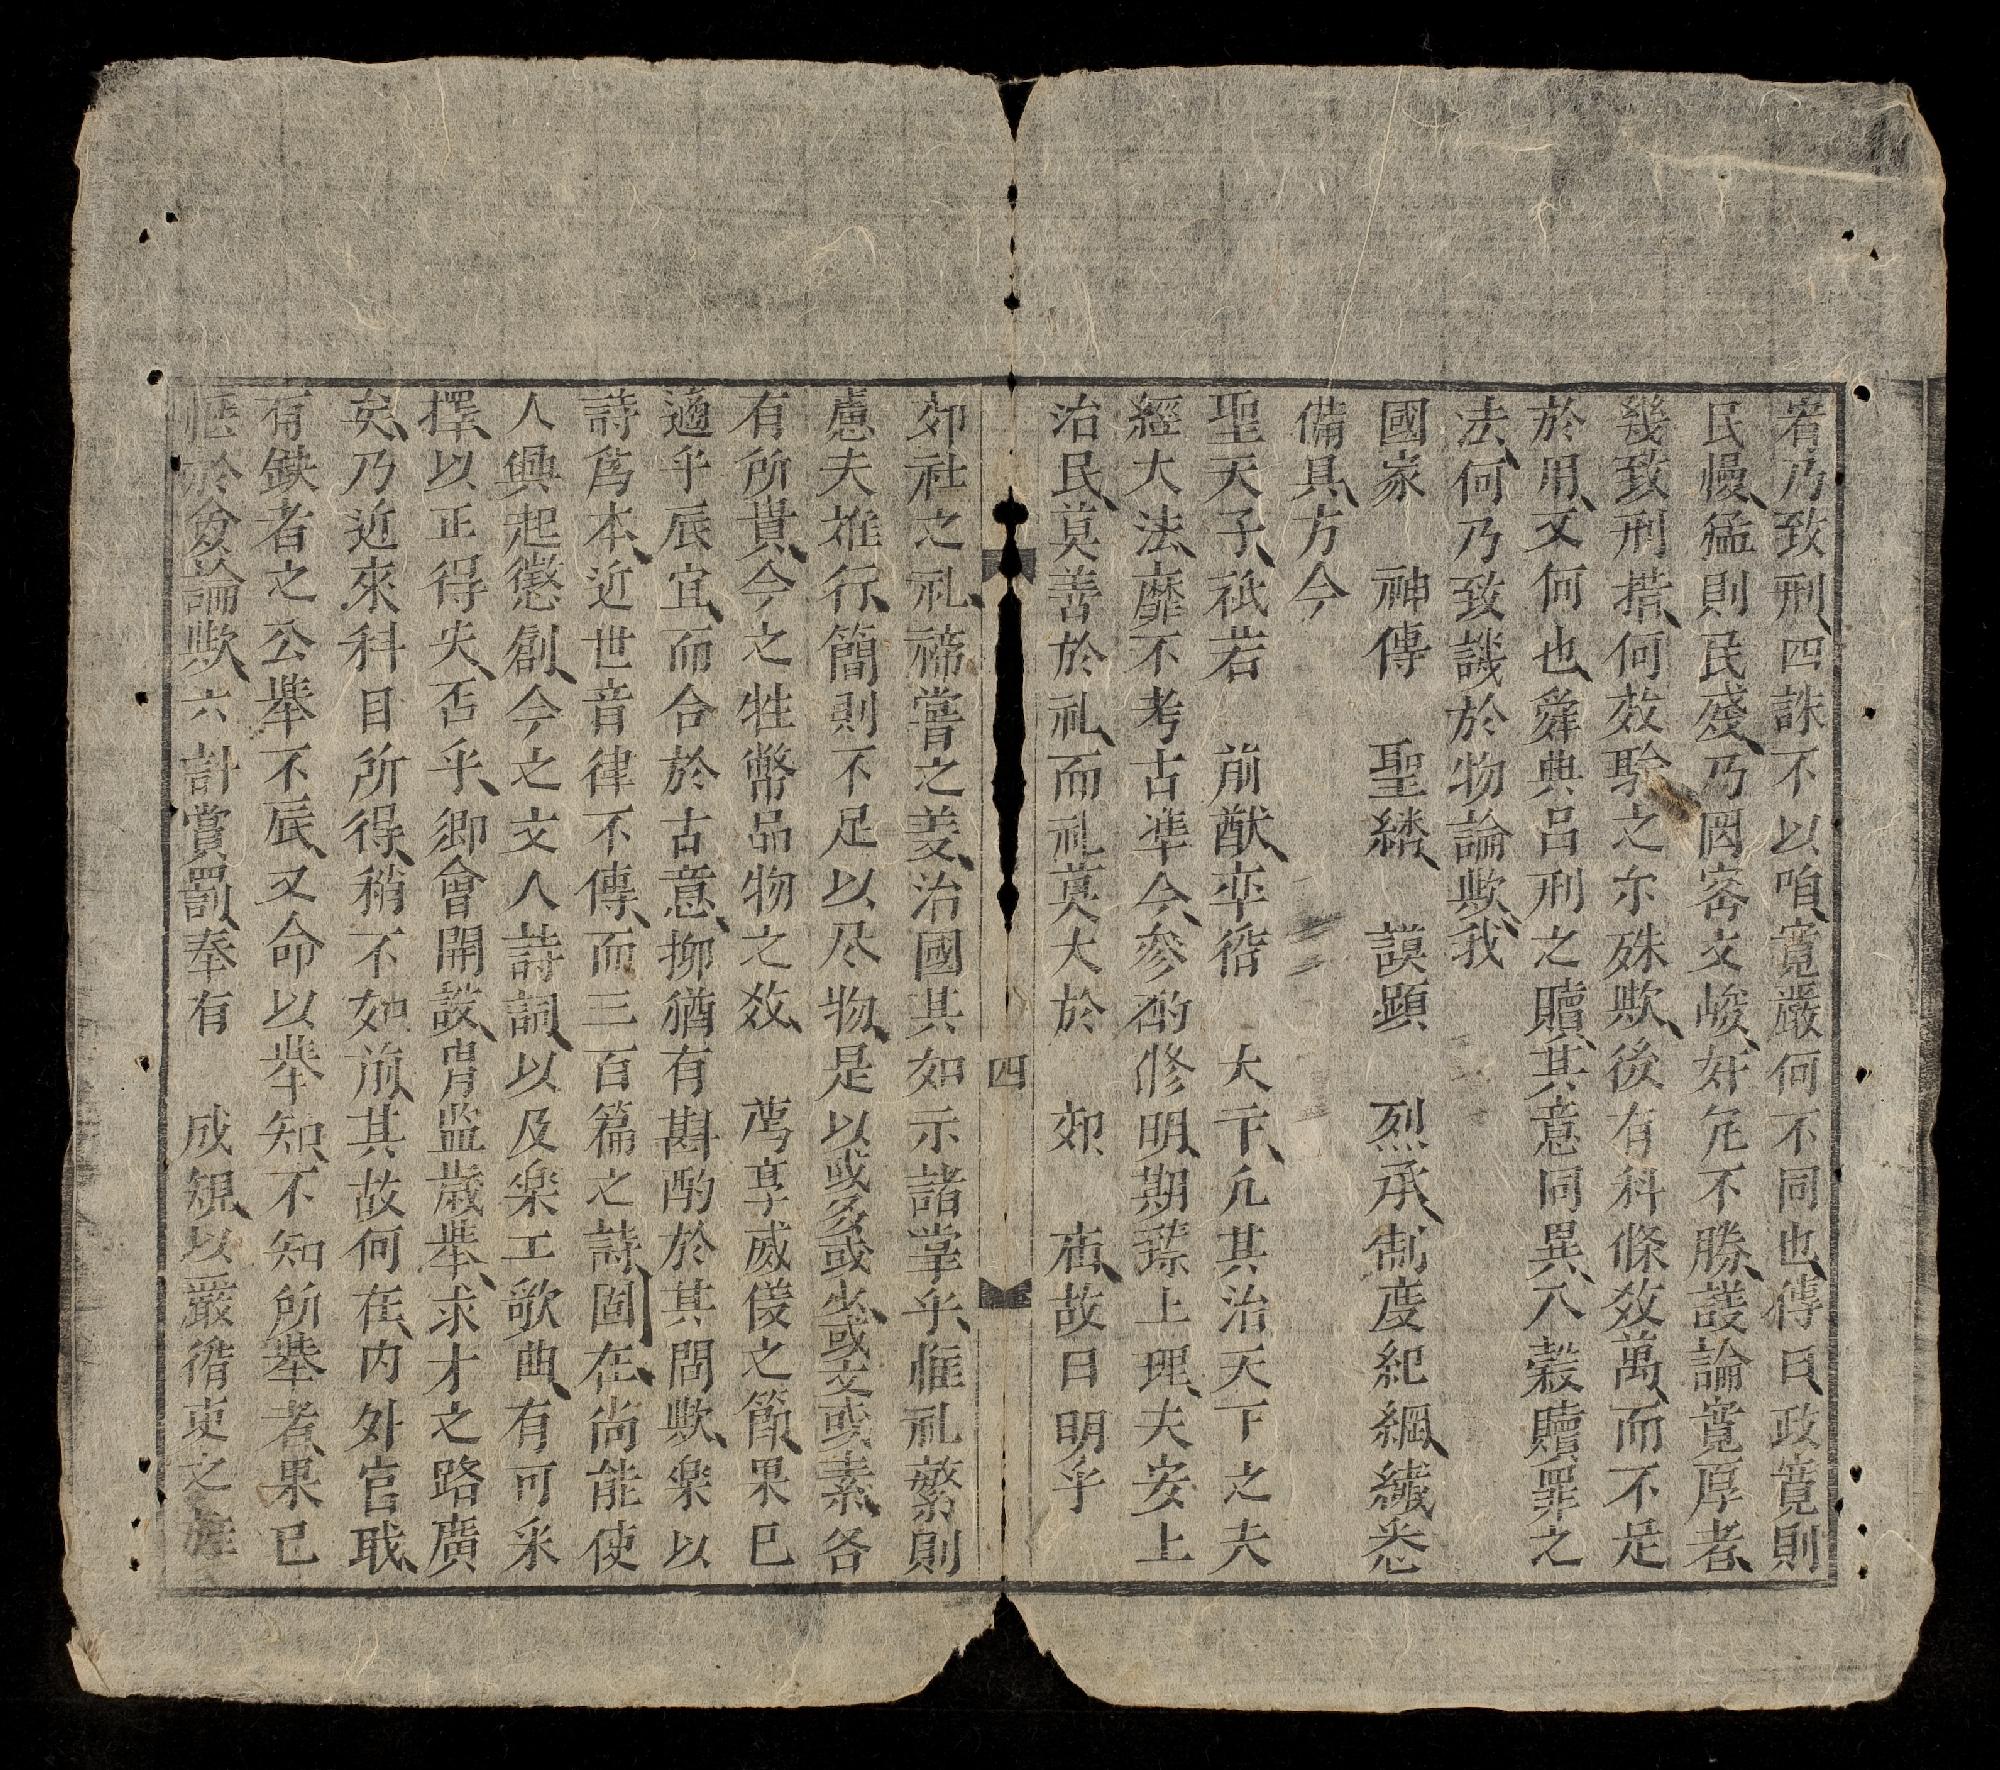 者乃致刑、四誅不以咱、寛嚴何不同也、傳曰、政寛則
民慢、猛則民殘、乃罔密文峻、奸宄不勝、議論寛厚者、
幾致刑措、何效驗之尓殊欤、後有科條效萬、而不足
於用、又何也、舜典呂刑之贖、其意同異、八穀贖罪之
法、何乃致譏於物論欤、我
國家　神傳　聖繼、　謨顯　烈承、制度紀綱、纖悉
備具、方今
聖天子、祇若　前猷、率循　大卞、凢其治天下之大
經大法、靡不考古準今、參酌修明、期臻上理、夫安上
治民、莫善於礼、而礼莫大於　郊　庙、故曰明乎
四
郊社之礼、禘嘗之義、治國其如示諸掌乎、惟礼繁則
慮夫难行、簡則不足以尽物、是以或多或少、或文或素、各
有所貴、今之牲幣品物之效、　薦享威儀之節、果已
適乎辰宜、而合於古意、抑猶有斟酌於其間欤、樂以
詩爲本、近世音律不傳、而三百篇之詩、固在、尚能使
人興起懲創、今之文人詩詞、以及樂工歌曲、有可采
擇、以正得失、否乎、鄉會開設、胄监歲举、求才之路廣
矣、乃近來科目所得、稍不如前、其故何在、内外官职、
有缺者之公举不辰、又命以举知、不知所举者、果已
恊於僉論欤、六計賞罰、奉有　成規、以嚴循吏之旌